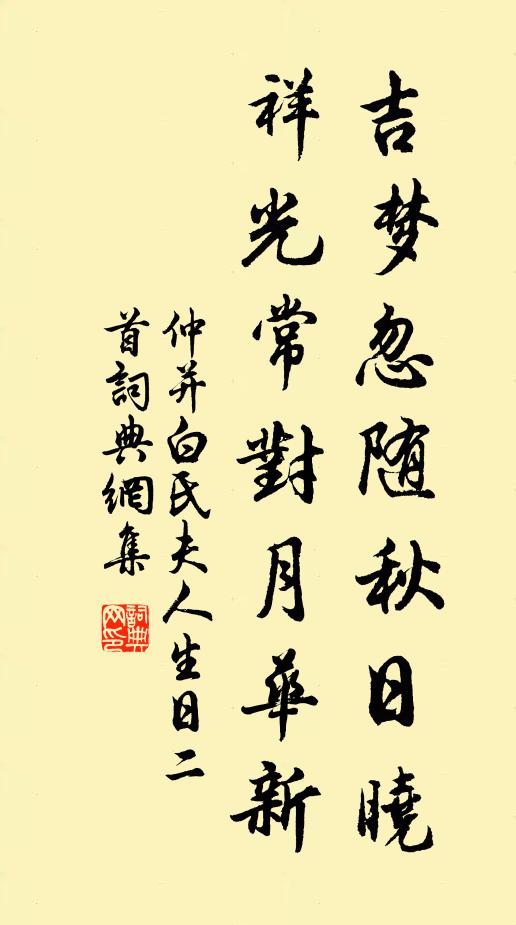 吉梦忽随秋日曉
祥光常對月華新
仲并白氏夫人生日二
首詞典網集
詞典網印